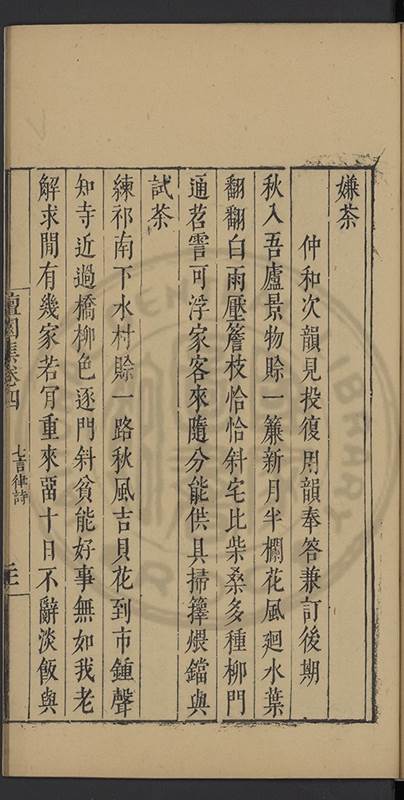 嫌茶
仲和次韻見投復用韻奉答兼訂後期
秋入吾廬景物賒一簾新月半欄花風廻水葉
翻翻白雨壓簷枝恰恰斜宅比柴桑多種柳門
通苕霅可浮家客來隨分能供具掃籜煨鐺與
試茶
練祁南下水村賒一路秋風吉貝花到市鍾聲
知寺近過橋柳色逐門斜貧能好事無如我老
解求閒有幾家若肎重來畱十日不辭淡飯與
檀園集卷四
七言律詩